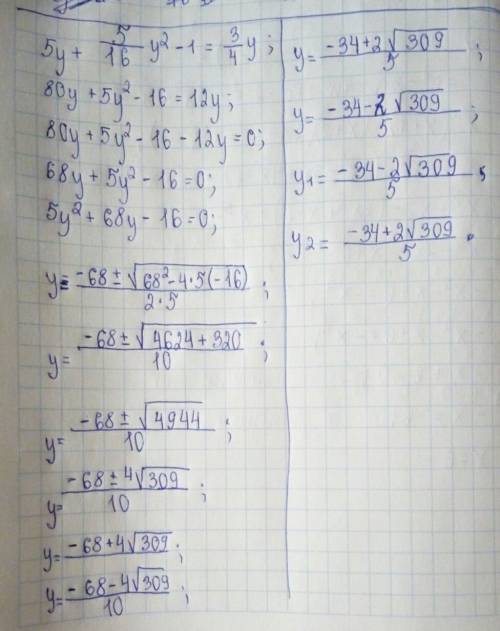 5y + 5/16 y² - 1 = 3/4 y;
80y + 5y² - 16 = 12y;
80y + 5y² - 16 - 12y = 0;
68y + 5y² - 16 = 0;
5y² + 68y - 16 = 0;
y = (-68 ± √(68² - 4·5(-16)))/(2·5);
y = (-68 ± √(4624 + 320))/10;
y = (-68 ± √4944)/10;
y = (-68 ± 4√309)/10;
y = -68 + 4√309;
y = (-68 - 4√309)/10;
y = (-34 + 2√309)/5;
y = (-34 - 2√309)/5;
y₁ = (-34 - 2√309)/5;
y₂ = (-34 + 2√309)/5.